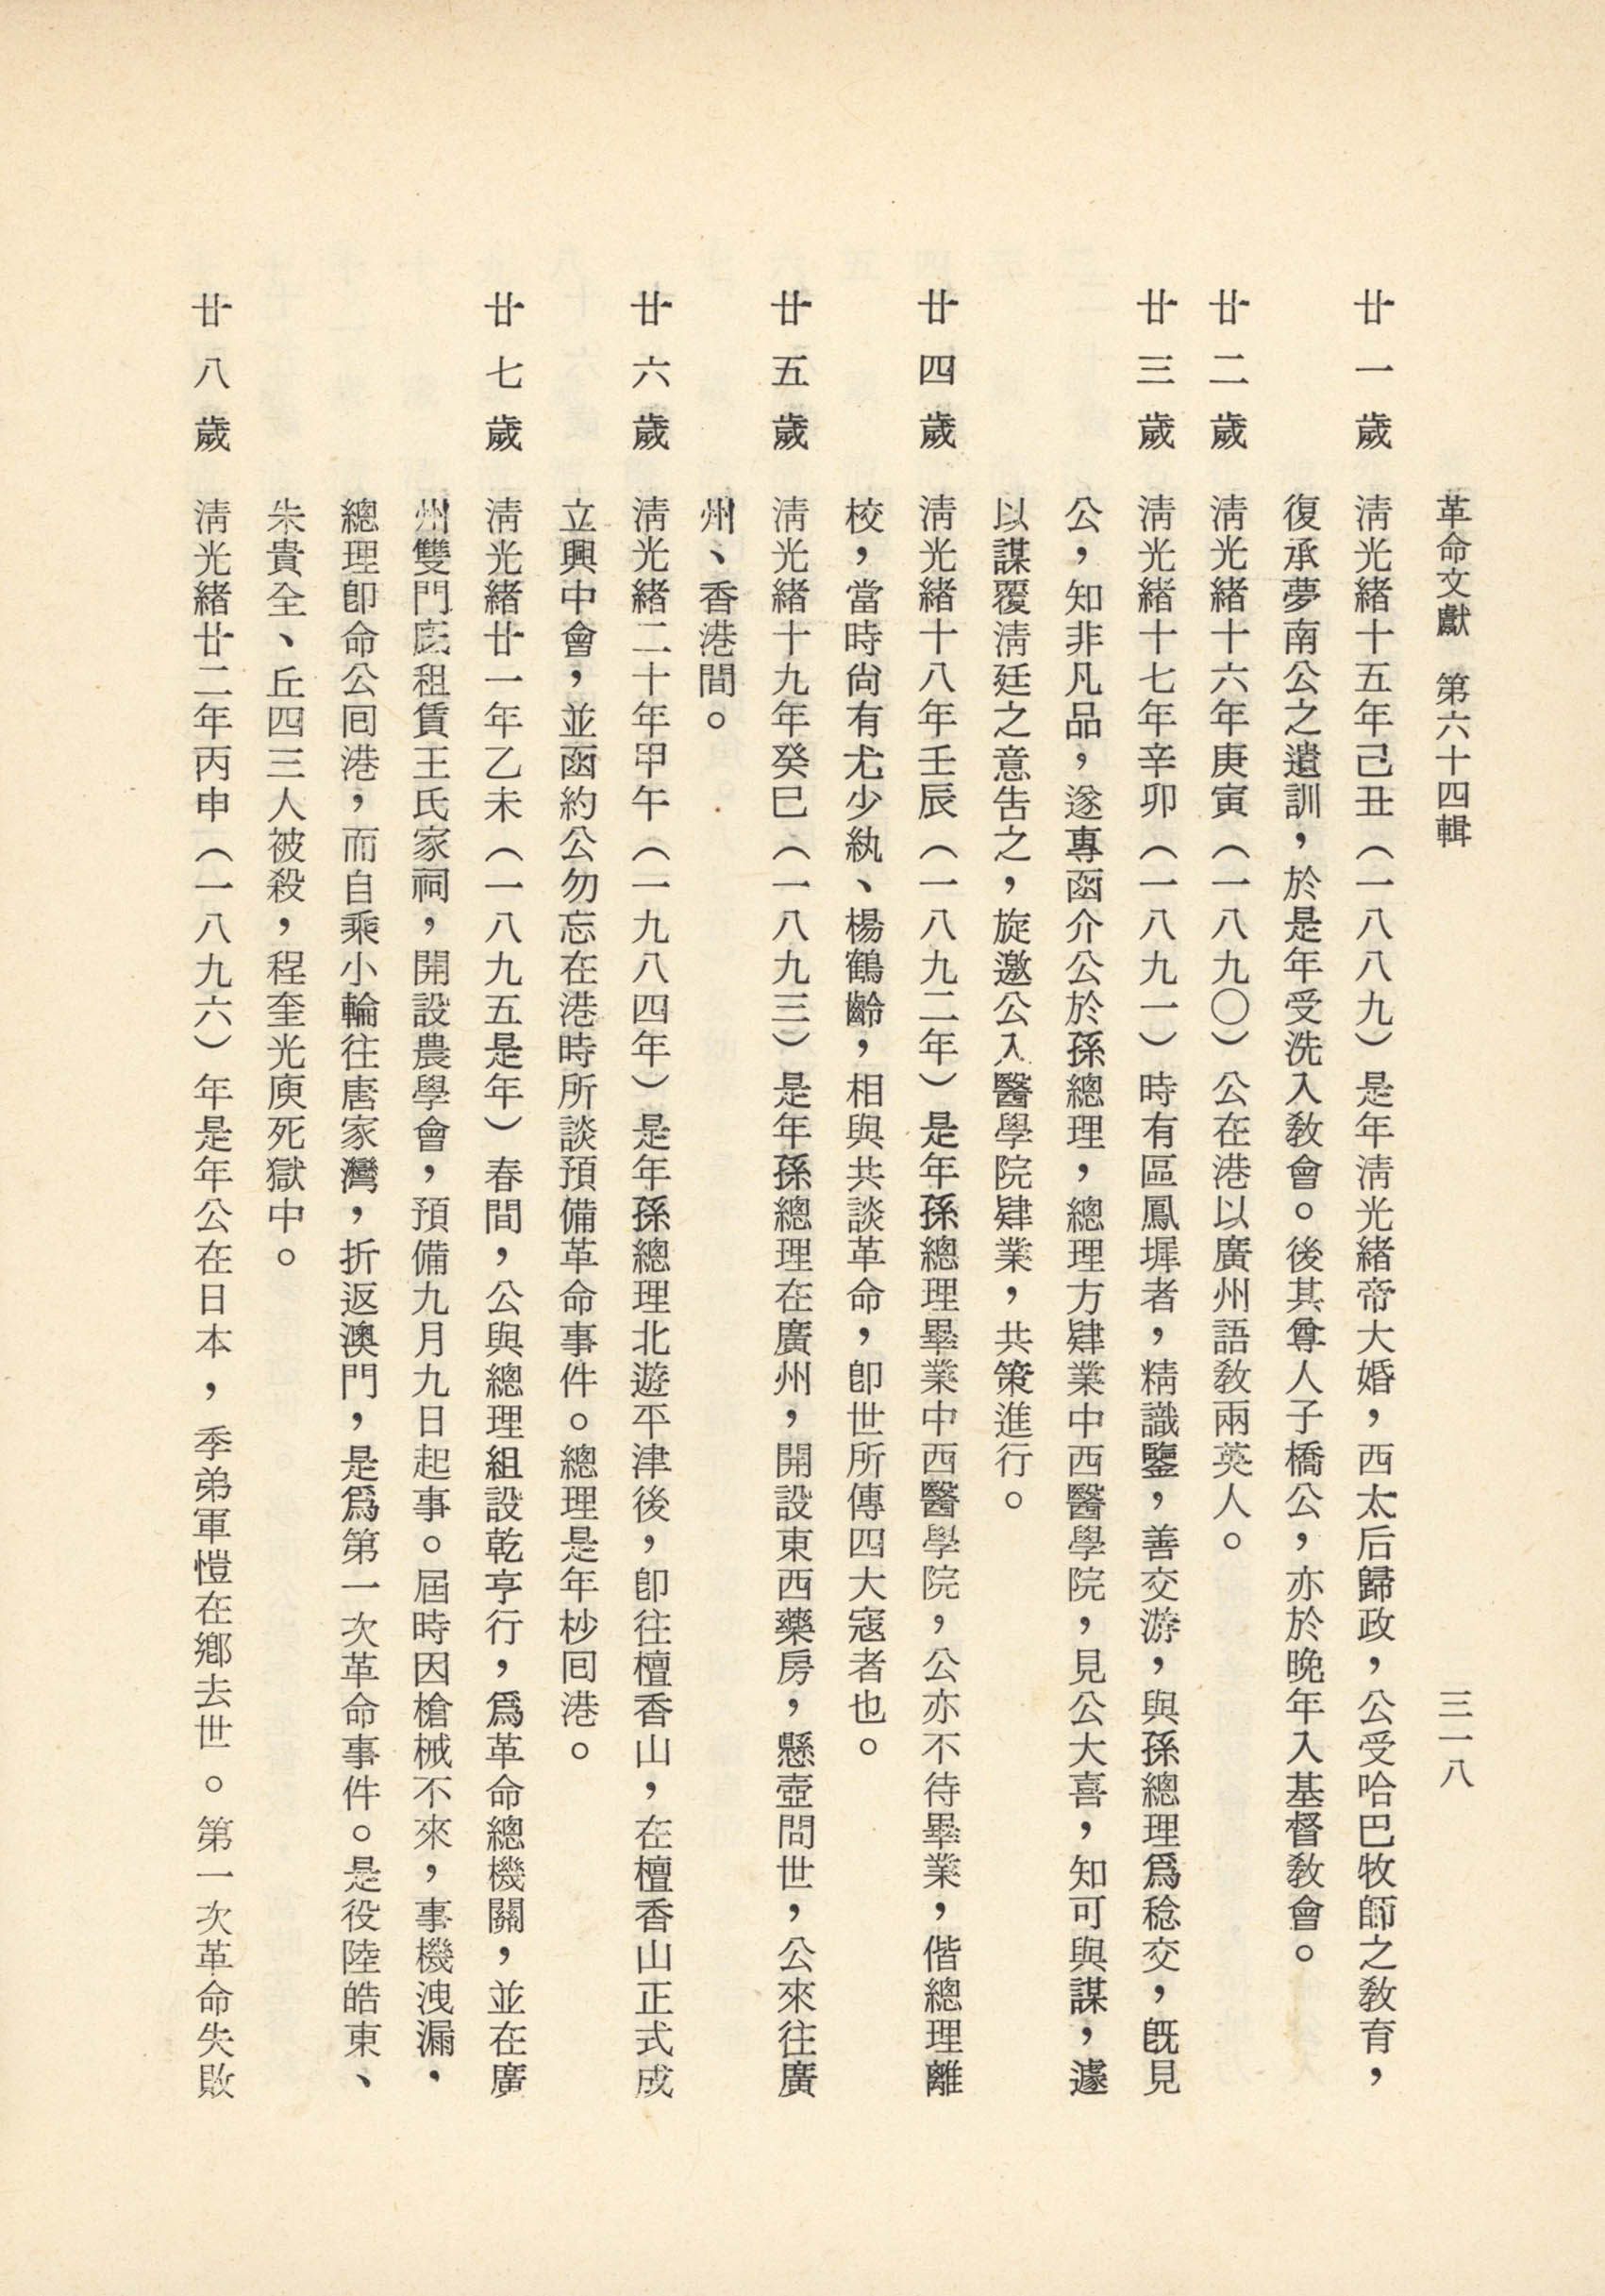 革命文獻　第六十四輯　三一八
廿一歲　淸光緖十五年己丑（一八八九）是年淸光緖帝大婚，西太后歸政，公受哈巴牧師之敎育，
復承夢南公之遺訓，於是年受洗入敎會。後其尊人子橋公，亦於晚年入基督敎會。
廿二歲　淸光緖十六年庚寅（一八九〇）公在港以廣州語敎兩英人。
廿三歲　淸光緖十七年辛卯（一八九一）時有區鳳墀者，精識鑒，善交游，與孫總理爲稔交，旣見
公，知非凡品，遂專函介公於孫總理，總理方肄業中西醫學院，見公大喜，知可與謀，遽
以謀覆淸廷之意吿之，旋邀公入醫學院肄業，共策進行。
廿四歲　淸光緖十八年壬辰（一八九二年）是年孫總理畢業中西醫學院，公亦不待畢業，偕總理離
校，當時尙有尤少紈、楊鶴齡，相與共談革命，卽世所傳四大寇者也。
廿五歲　淸光緖十九年癸巳（一八九三）是年孫總理在廣州，開設東西藥房，懸壺問世，公來往廣
州、香港間。
廿六歲　淸光緖二十年甲午（一九八四年）是年孫總理北遊平津後，卽往檀香山，在檀香山正式成
立興中會，並函約公勿忘在港時所談預備革命事件。總理是年杪囘港。
廿七歲　淸光緖廿一年乙未（一八九五是年）春間，公與總理組設乾亨行，爲革命總機關，並在廣
州雙門底租賃王氏家祠，開設農學會，預備九月九日起事。屆時因槍械不來，事機洩漏，
總理卽命公囘港，而自乘小輪往唐家灣，折返澳門，是爲第一次革命事件。是役陸皓東、
朱貴全、丘四三人被殺，程奎光庾死獄中。
廿八歲　淸光緖廿二年丙申（一八九六）年是年公在日本，季弟軍愷在鄕去世。第一次革命失敗